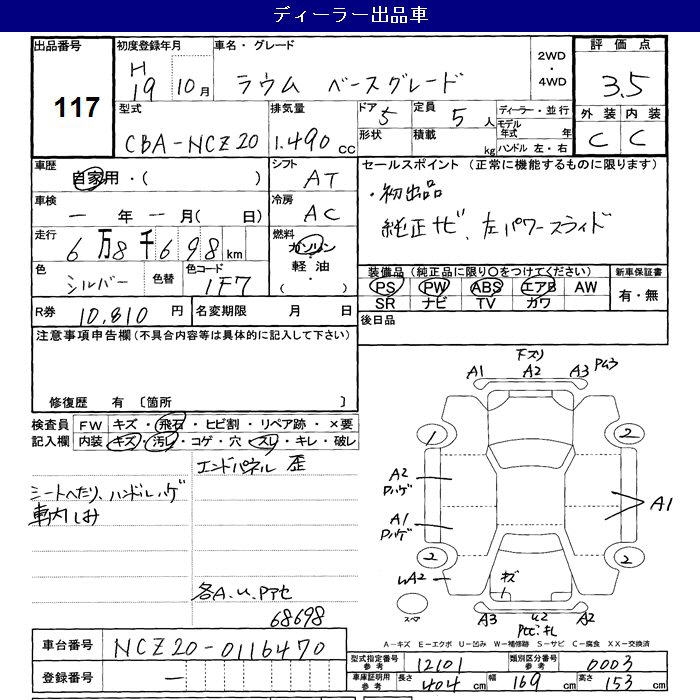 ディーラー出品車
出品番号 初度登録年月 車名・グレード 2WD・4WD 評価点
117 H19 10月 ラウム ベースグレード 3.5
型式 排気量 ドア 定員 ディーラー・並行 外装 内装
CBA-NCZ20 1.490cc 5 5人 モデル年式 年 C C
形状 積載 kg ハンドル 左・右
車歴 自家用・( ) シフト AT セールスポイント (正常に機能するものに限ります)
車検 ー年ー月( 日) 冷房 AC ・初出品
走行 6万8千698km 燃料 ガソリン・軽油・( ) 純正ナビ、左パワースライド
色 シルバー 色替 色コード 1F7 装備品 (純正品に限り○をつけてください) 新車保証書
PS PW ABS エアB AW 有・無
SR ナビ TV カワ
R券 10,810円 名変期限 月 日 後日品
注意事項申告欄(不具合内容等は具体的に記入して下さい)
修復歴 有 〔箇所 〕
検査員記入欄 FW キズ・飛石・ヒビ割・リペア跡・×要
内装 キズ・汚レ・コゲ・穴・スレ・キレ・破レ
エンドパネル 歪
シートへたり、ハンドルハゲ
車内しみ
各A.u.Pアセ
68698
下スリ
A1 A2 A3 Pムラ
1 2
A2 Pハゲ
A1 Pハゲ
A1
2 2
uA2 キズ
スペア
A3 u2 A2
A-キズ E-エクボ U-凹み W-補修跡 S-サビ C-腐食 XX-交換済
車台番号 NCZ20-0116470 型式指定番号参考 12101 類別区分番号参考 0003
登録番号 ー 車庫証明用参考 長さ 404cm 幅 169cm 高さ 153cm